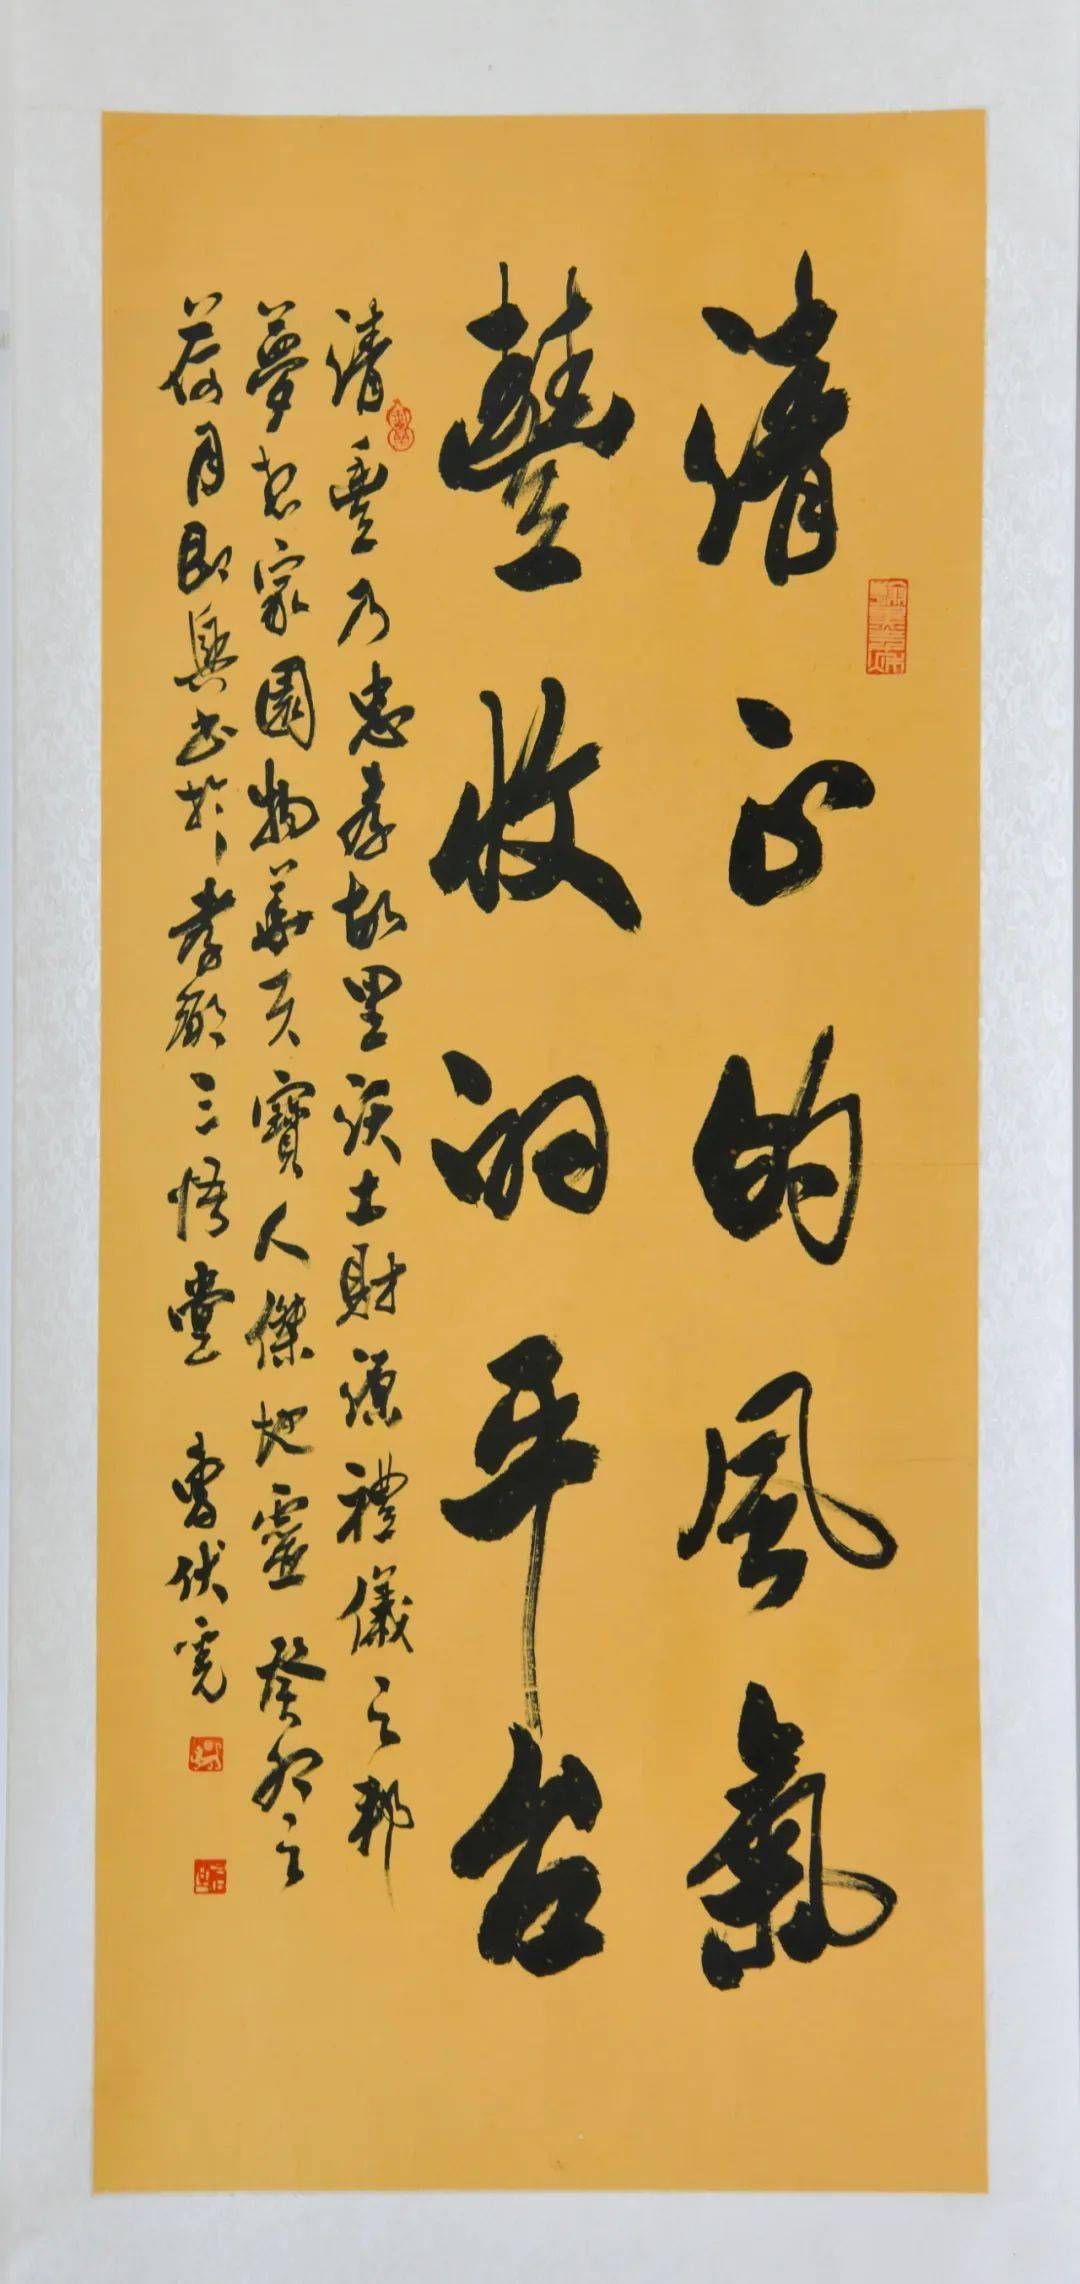 清正的風氣
豐收的平台
清豐乃忠孝故里沃土財源禮儀之邦
夢想家園物華天寶人傑地靈 癸卯之
荷月即興書於孝三悟堂 曹伏